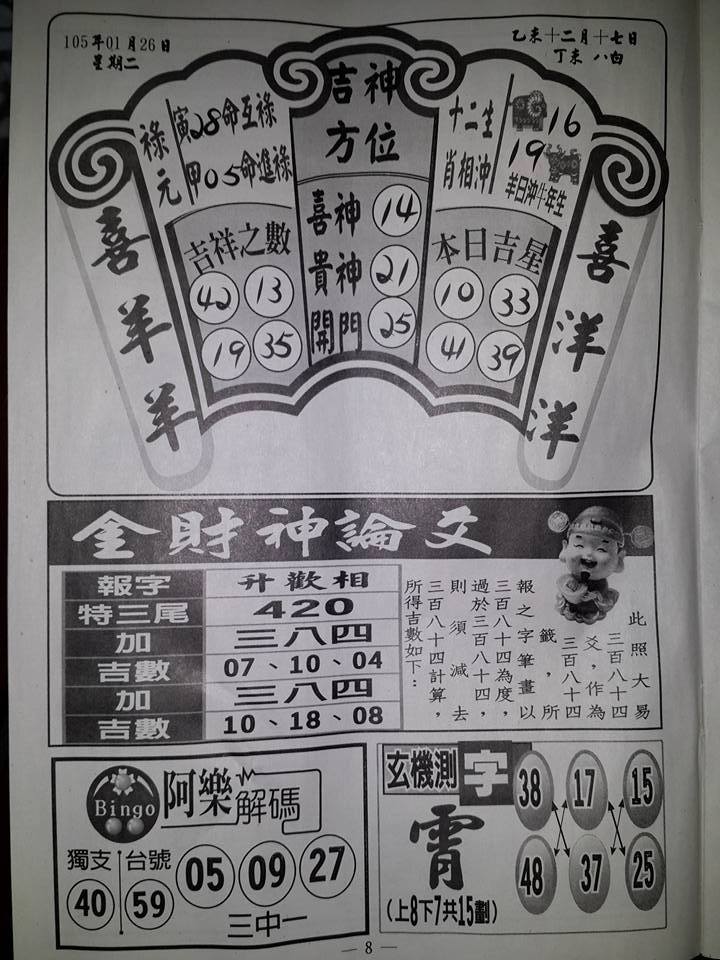 105年01月26日
星期二
乙未十二月十七日
丁未 八白
祿元
寅28命互祿
甲05命進祿
吉神
方位
十二生
肖相沖
16
19
羊日沖牛年生
喜羊羊
吉祥之數
42 13
19 35
喜神 14
貴神 21
開門 25
本日吉星
10 33
41 39
喜洋洋
金財神論爻
報字 升歡相
特三尾 420
加 三八四
吉數 07、10、04
加 三八四
吉數 10、18、08
此照大易
三百八十四
爻,作為
三百八十四
籤,所
報之字筆畫以
三百八十四為度,
過於三百八十四,
則須減去
三百八十四計算,
所得吉數如下:
Bingo
阿樂解碼
獨支 台號
40 59 05 09 27
三中一
玄機測字
霄
(上8下7共15劃)
38 17 15
48 37 25
— 8 —